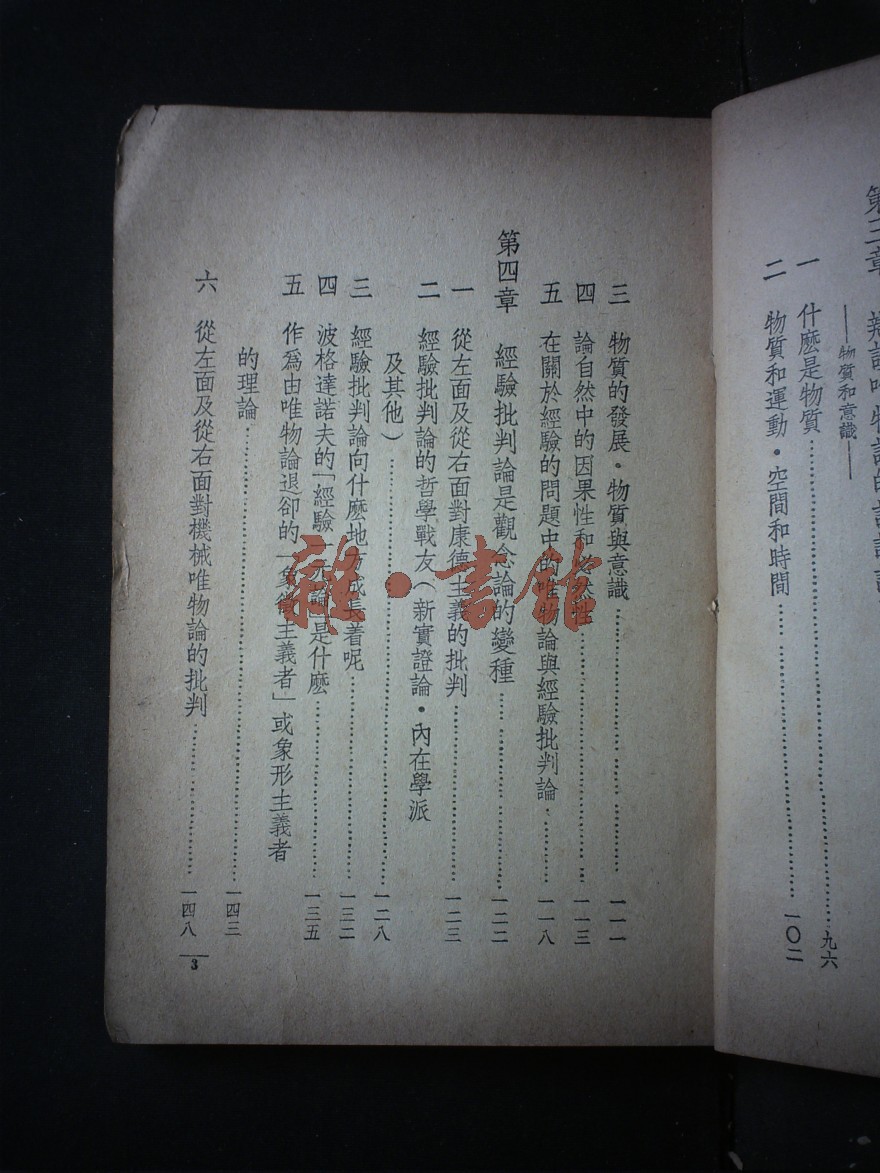 第三章
——物質和意識——
一 什麼是物質……九六
二 物質和運動・空間和時間……一〇二
三 物質的發展・物質與意識……一一一
四 論自然中的因果性和必然性……一一三
五 在關於經驗的問題中的唯物論與經驗批判論……一一八
第四章 經驗批判論是觀念論的變種……一二二
一 從左面及從右面對康德主義的批判……一二三
二 經驗批判論的哲學戰友(新實證論・內在學派
及其他)……一二八
三 經驗批判論向什麼地方成長着呢……一三二
四 波格達諾夫的「經驗一元論」是什麼……一三五
五 作爲由唯物論退卻的「象徵主義者」或象形主義者
的理論……一四三
六 從左面及從右面對機械唯物論的批判……一四八
3
雜・書館